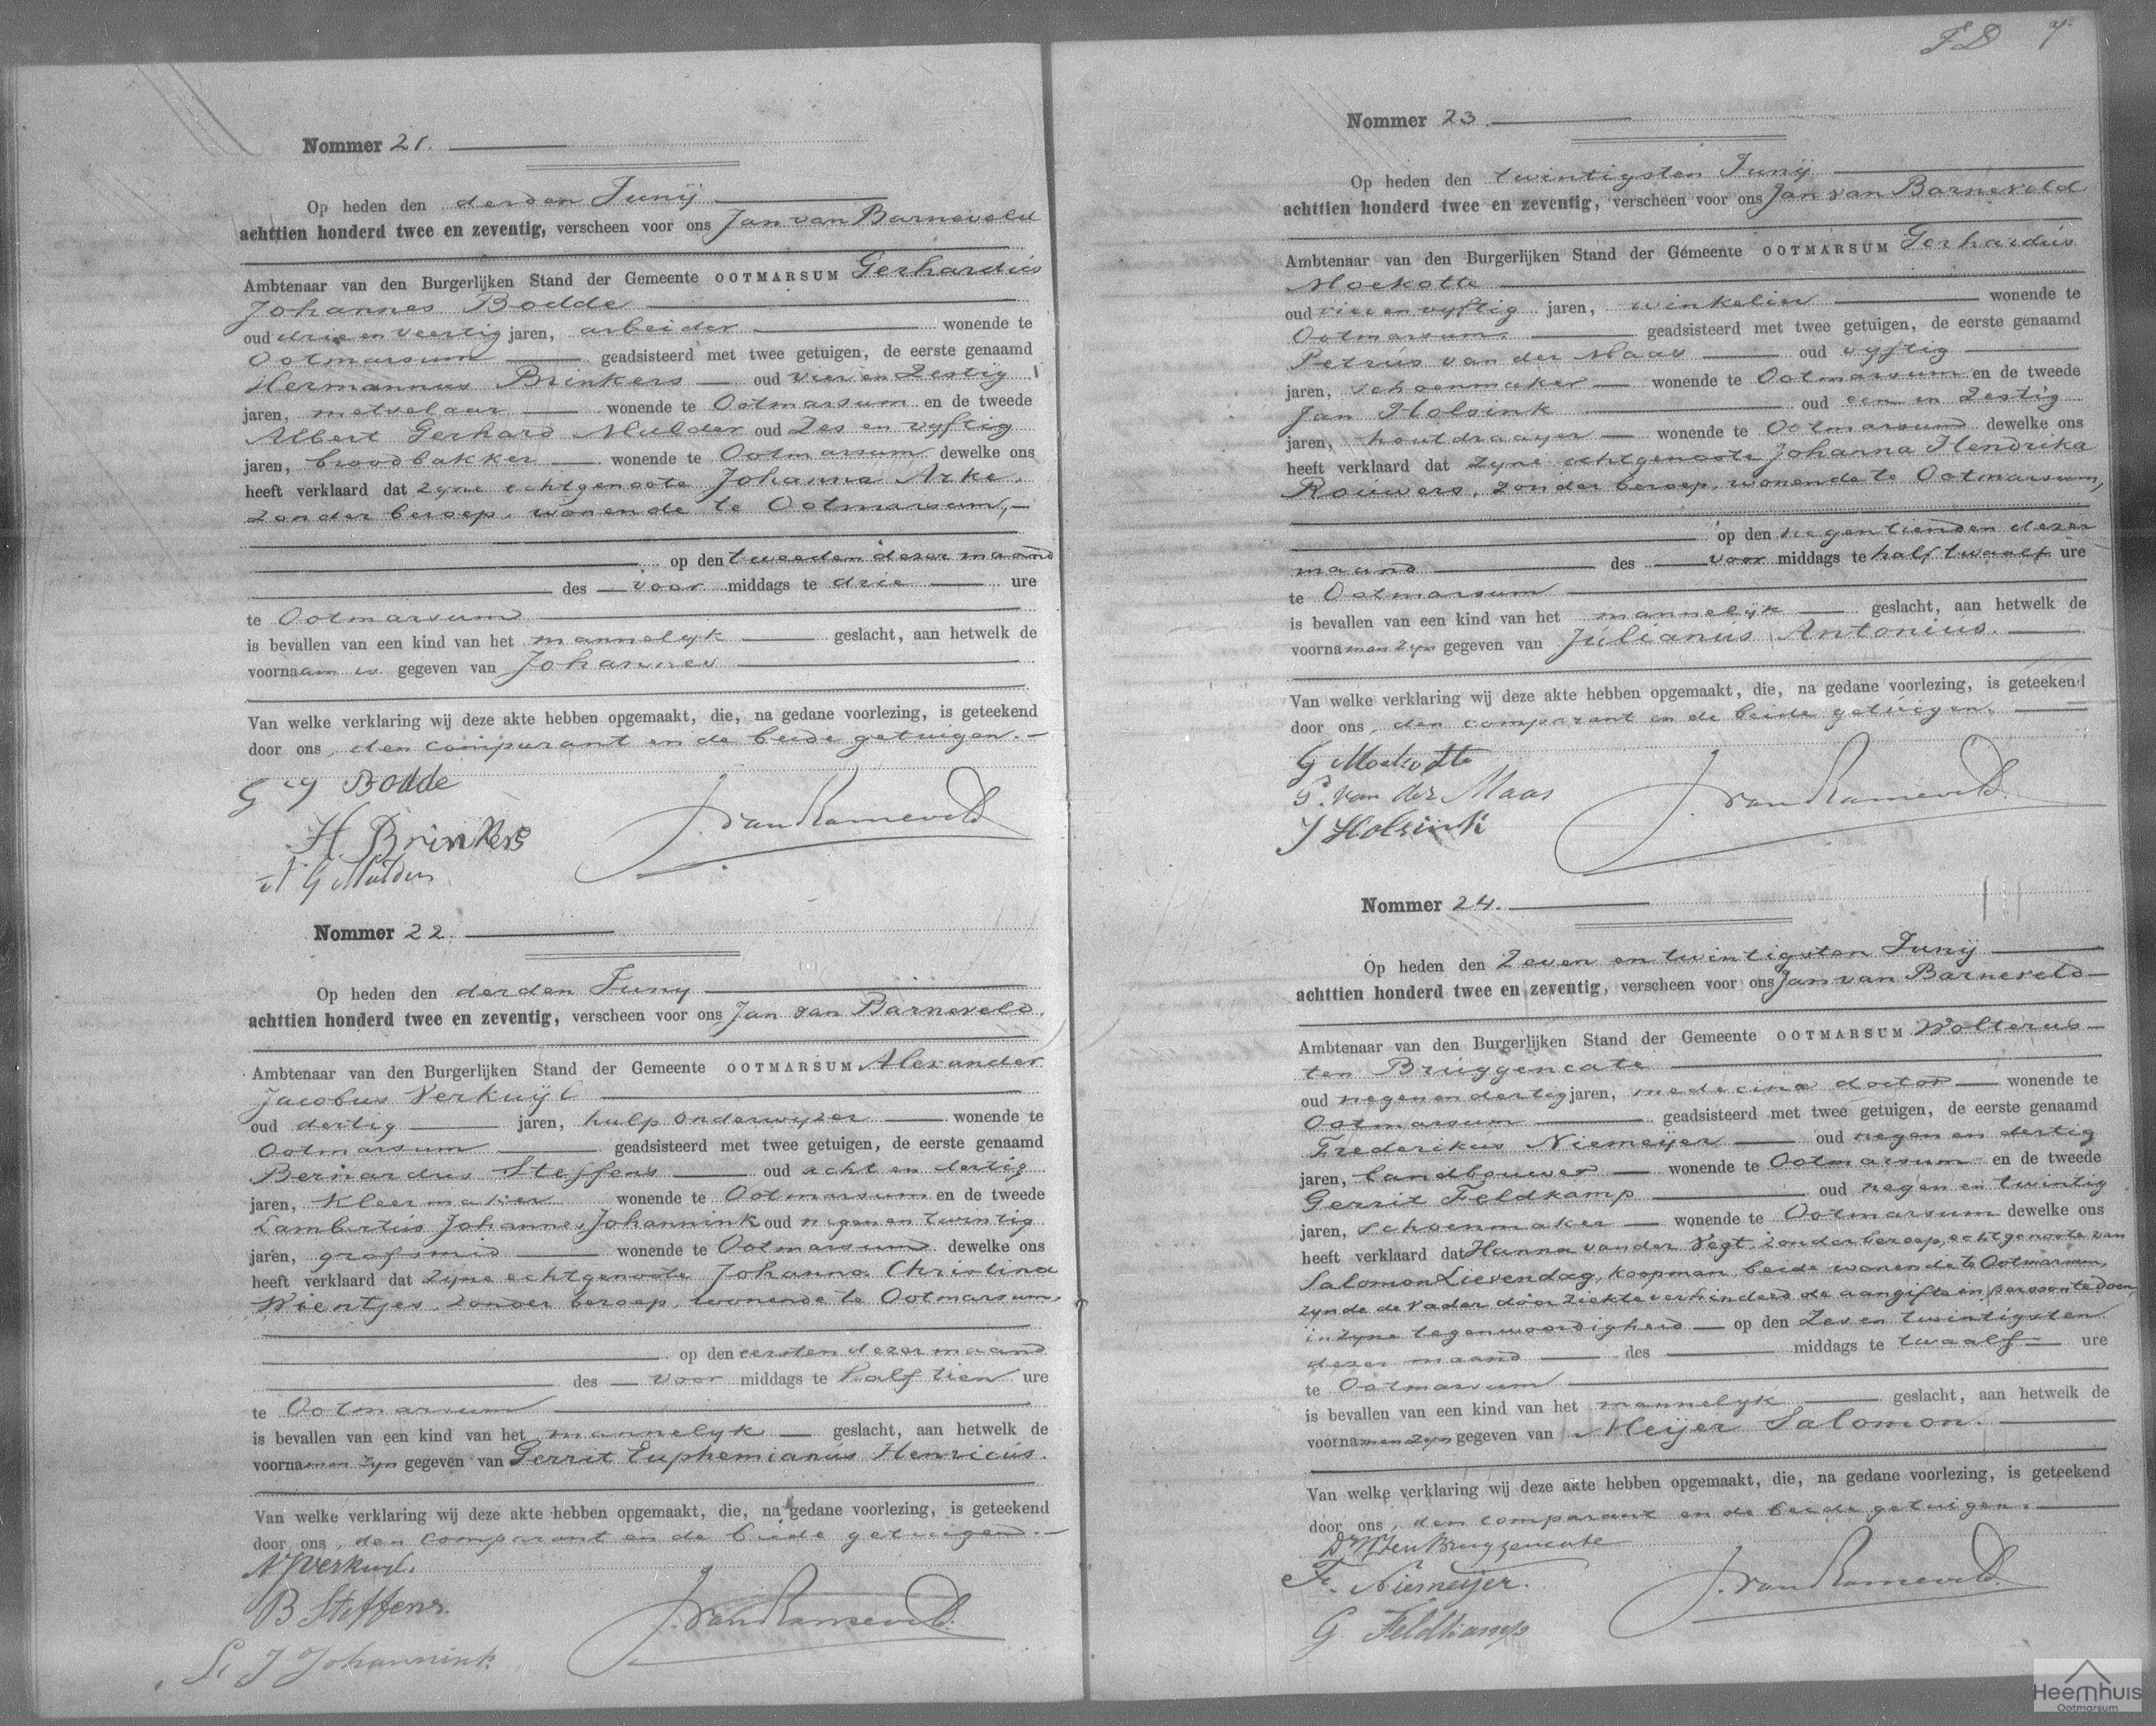 Nommer 21.
Op heden den derden Junij
achttien honderd twee en zeventig, verscheen voor ons Jan van Barneveld
Ambtenaar van den Burgerlijken Stand der Gemeente OOTMARSUM Gerhardus
Johannes Bodde
oud drie en veertig jaren, arbeider wonende te
Ootmarsum geadsisteerd met twee getuigen, de eerste genaamd
Hermannus Brinkers oud vier en Zestig
jaren, metselaar wonende te Ootmarsum en de tweede
Albert Gerhard Mulder oud Zes en vyftig
jaren, broodbakker wonende te Ootmarsum dewelke ons
heeft verklaard dat zyne echtgenoote Johanna Arke,
zonder beroep, wonende te Ootmarsum,
op den tweeden dezer maand
des voor middags te drie ure
te Ootmarsum
is bevallen van een kind van het mannelyk geslacht, aan hetwelk de
voornaam is gegeven van Johannes
Van welke verklaring wij deze akte hebben opgemaakt, die, na gedane voorlezing, is geteekend
door ons, den comparant en de beide getuigen.
G J Bodde
H Brinkers
A G Mulder
J. van Barneveld
Nommer 22.
Op heden den derden Juny
achttien honderd twee en zeventig, verscheen voor ons Jan van Barneveld,
Ambtenaar van den Burgerlijken Stand der Gemeente OOTMARSUM Alexander
Jacobus Verkuijl
oud dertig jaren, hulponderwyzer wonende te
Ootmarsum geadsisteerd met twee getuigen, de eerste genaamd
Bernardus Steffens oud acht en dertig
jaren, Kleermaker wonende te Ootmarsum en de tweede
Lambertus Johannes Johannink oud negen en twintig
jaren, grofsmid wonende te Ootmarsum dewelke ons
heeft verklaard dat zyne echtgenoote Johanna Christina
Wientjes, zonder beroep, wonende te Ootmarsum,
op den eersten dezer maand
des voor middags te half tien ure
te Ootmarsum
is bevallen van een kind van het mannelyk geslacht, aan hetwelk de
voornamen zyn gegeven van Gerrit Euphemianus Henricus.
Van welke verklaring wij deze akte hebben opgemaakt, die, na gedane voorlezing, is geteekend
door ons, den comparant en de beide getuigen.
AJVerkuyl.
B Steffens.
L. J Johannink
J. van Barneveld.
FD 7
Nommer 23.
Op heden den twintigsten Junij
achttien honderd twee en zeventig, verscheen voor ons Jan van Barneveld
Ambtenaar van den Burgerlijken Stand der Gemeente OOTMARSUM Gerhardus
Moekotte
oud vier en vyftig jaren, winkelier wonende te
Ootmarsum, geadsisteerd met twee getuigen, de eerste genaamd
Petrus van der Maas oud vyftig
jaren, schoenmaker wonende te Ootmarsum en de tweede
Jan Holsink oud een en Zestig
jaren, houtdraayer wonende te Ootmarsum dewelke ons
heeft verklaard dat zyne echtgenoote Johanna Hendrika
Rouwers, zonder beroep, wonende te Ootmarsum,
op den negentienden dezer
maand des voor middags te half twaalf ure
te Ootmarsum
is bevallen van een kind van het mannelijk geslacht, aan hetwelk de
voornamen zyn gegeven van Julianus Antonius.
Van welke verklaring wij deze akte hebben opgemaakt, die, na gedane voorlezing, is geteekend
door ons, den comparant en de beide getuigen.
G Moekotte
P. van der Maas
J Holsink
J. van Barneveld.
Nommer 24.
Op heden den Zeven en twintigsten Junij
achttien honderd twee en zeventig, verscheen voor ons Jan van Barneveld
Ambtenaar van den Burgerlijken Stand der Gemeente OOTMARSUM Wolterus
ten Bruggencate
oud negen en dertig jaren, medecinae doctor wonende te
Ootmarsum geadsisteerd met twee getuigen, de eerste genaamd
Frederikus Niemeijer oud negen en dertig
jaren, landbouwer wonende te Ootmarsum en de tweede
Gerrit Feldkamp oud negen en twintig
jaren, schoenmaker wonende te Ootmarsum dewelke ons
heeft verklaard dat Hanna van der Vegt zonder beroep, echtgenoote van
Salomon Lievendag, koopman, beide wonende te Ootmarsum,
zynde de vader door ziekte verhinderd de aangifte in persoon te doen,
in zyne tegenwoordigheid op den Zes en twintigsten
dezer maand des middags te twaalf ure
te Ootmarsum
is bevallen van een kind van het mannelyk geslacht, aan hetwelk de
voornamen zyn gegeven van Meijer Salomon.
Van welke verklaring wij deze akte hebben opgemaakt, die, na gedane voorlezing, is geteekend
door ons, den comparant en de beide getuigen.
Dr W ten Bruggencate
Fr. Niemeijer.
G. Feldkamp
J. van Barneveld.
Heemhuis
Ootmarsum